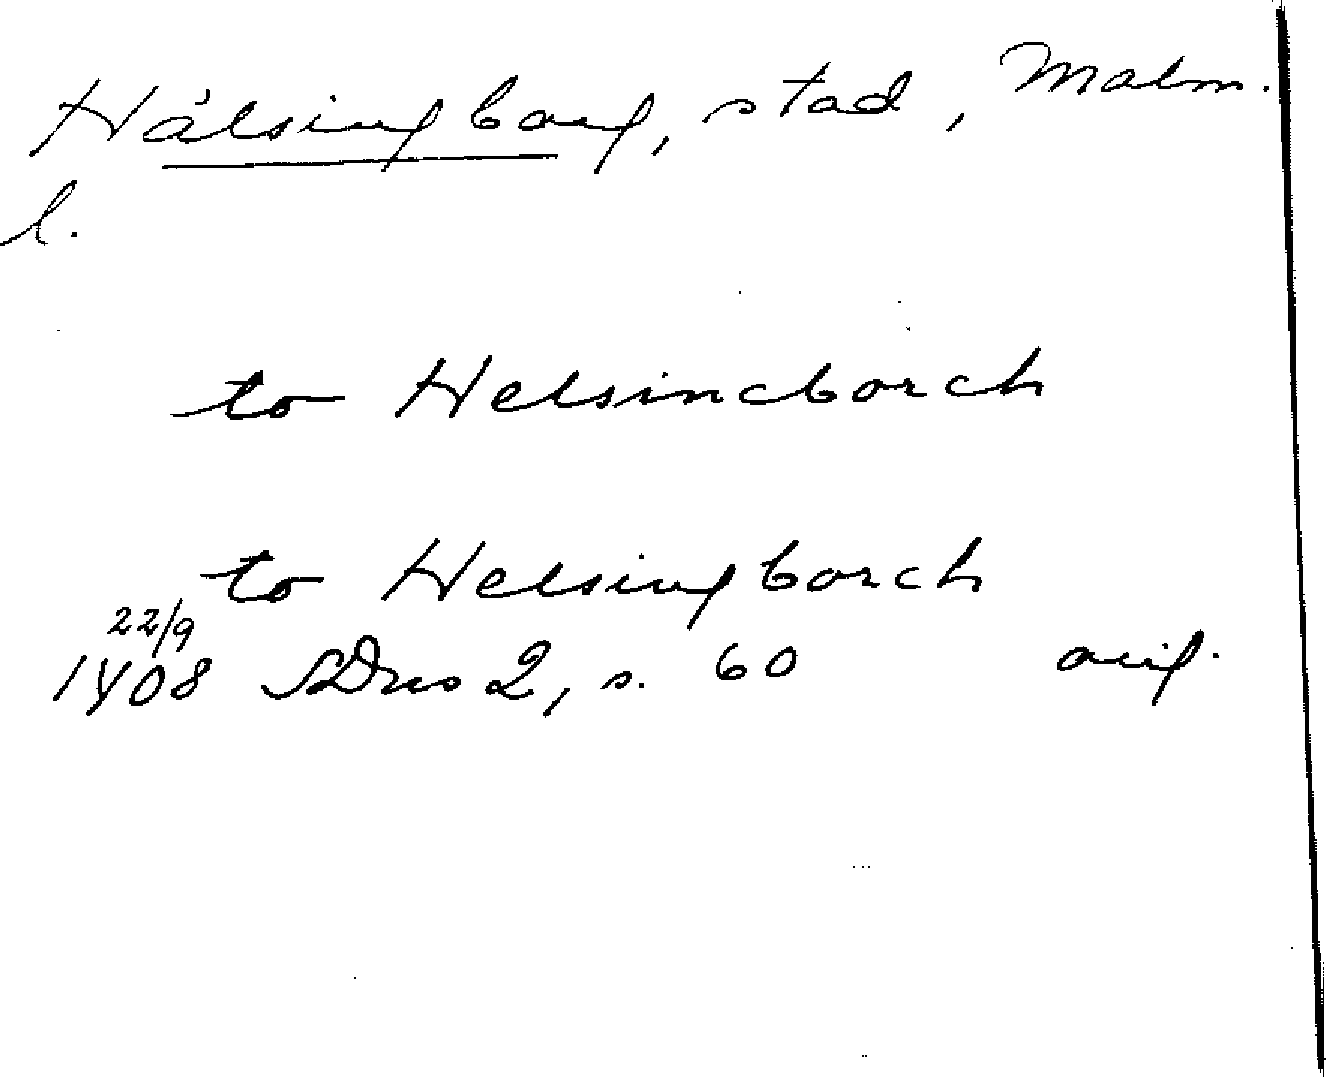 Hälsingborg, stad, Malm.
l.
to Helsincborch
to Helsingborch
22/9
1408 SDns 2, s. 60 orig.